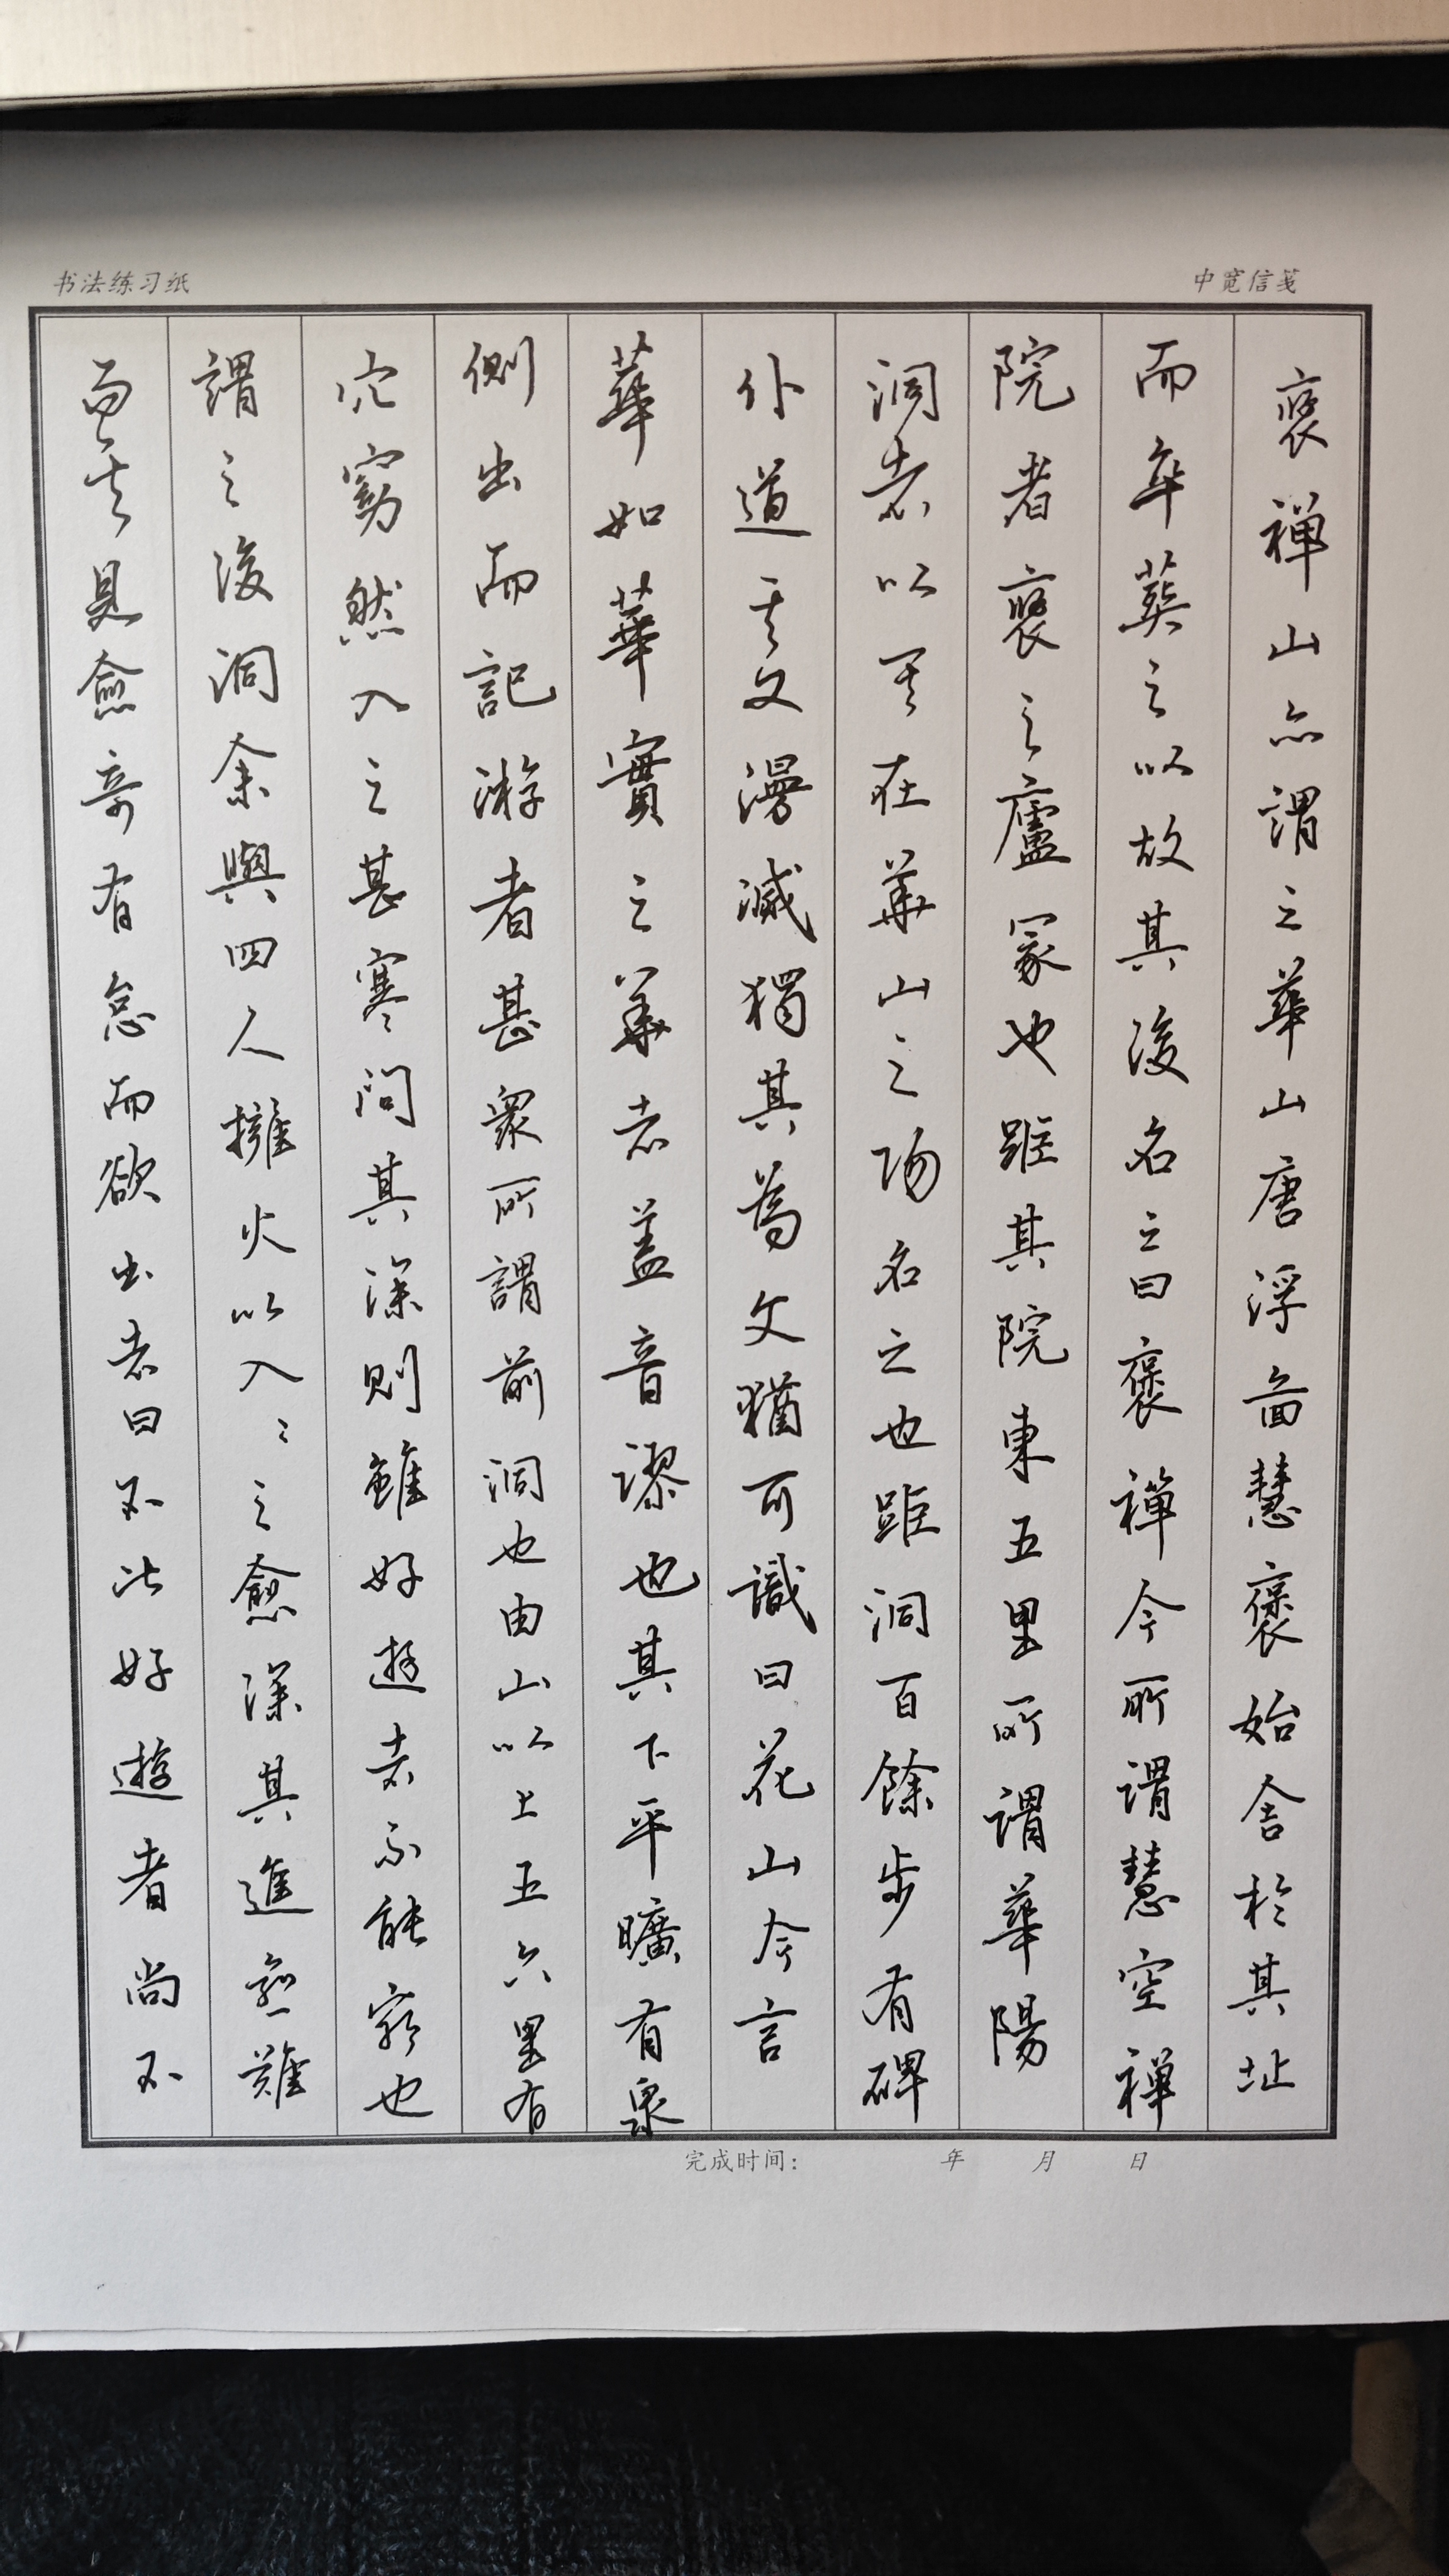 书法练习纸
中宽信笺
褒禪山亦謂之華山唐浮啚慧褒始舍於其址
而卒葬之以故其後名之曰褒禪今所謂慧空禪
院者褒之廬冢也距其院東五里所謂華陽
洞者以其在華山之阳名之也距洞百餘步有碑
仆道其文漫滅獨其為文猶可識曰花山今言
華如華實之華者盖音謬也其下平曠有泉
側出而記游者甚衆所謂前洞也由山以上五六里有
穴窈然入之甚寒問其深則雖好遊者不能窮也
謂之後洞余與四人擁火以入〻之愈深其進愈難
而其見愈奇有怠而欲出者曰不比好遊者尚不
完成时间： 年 月 日